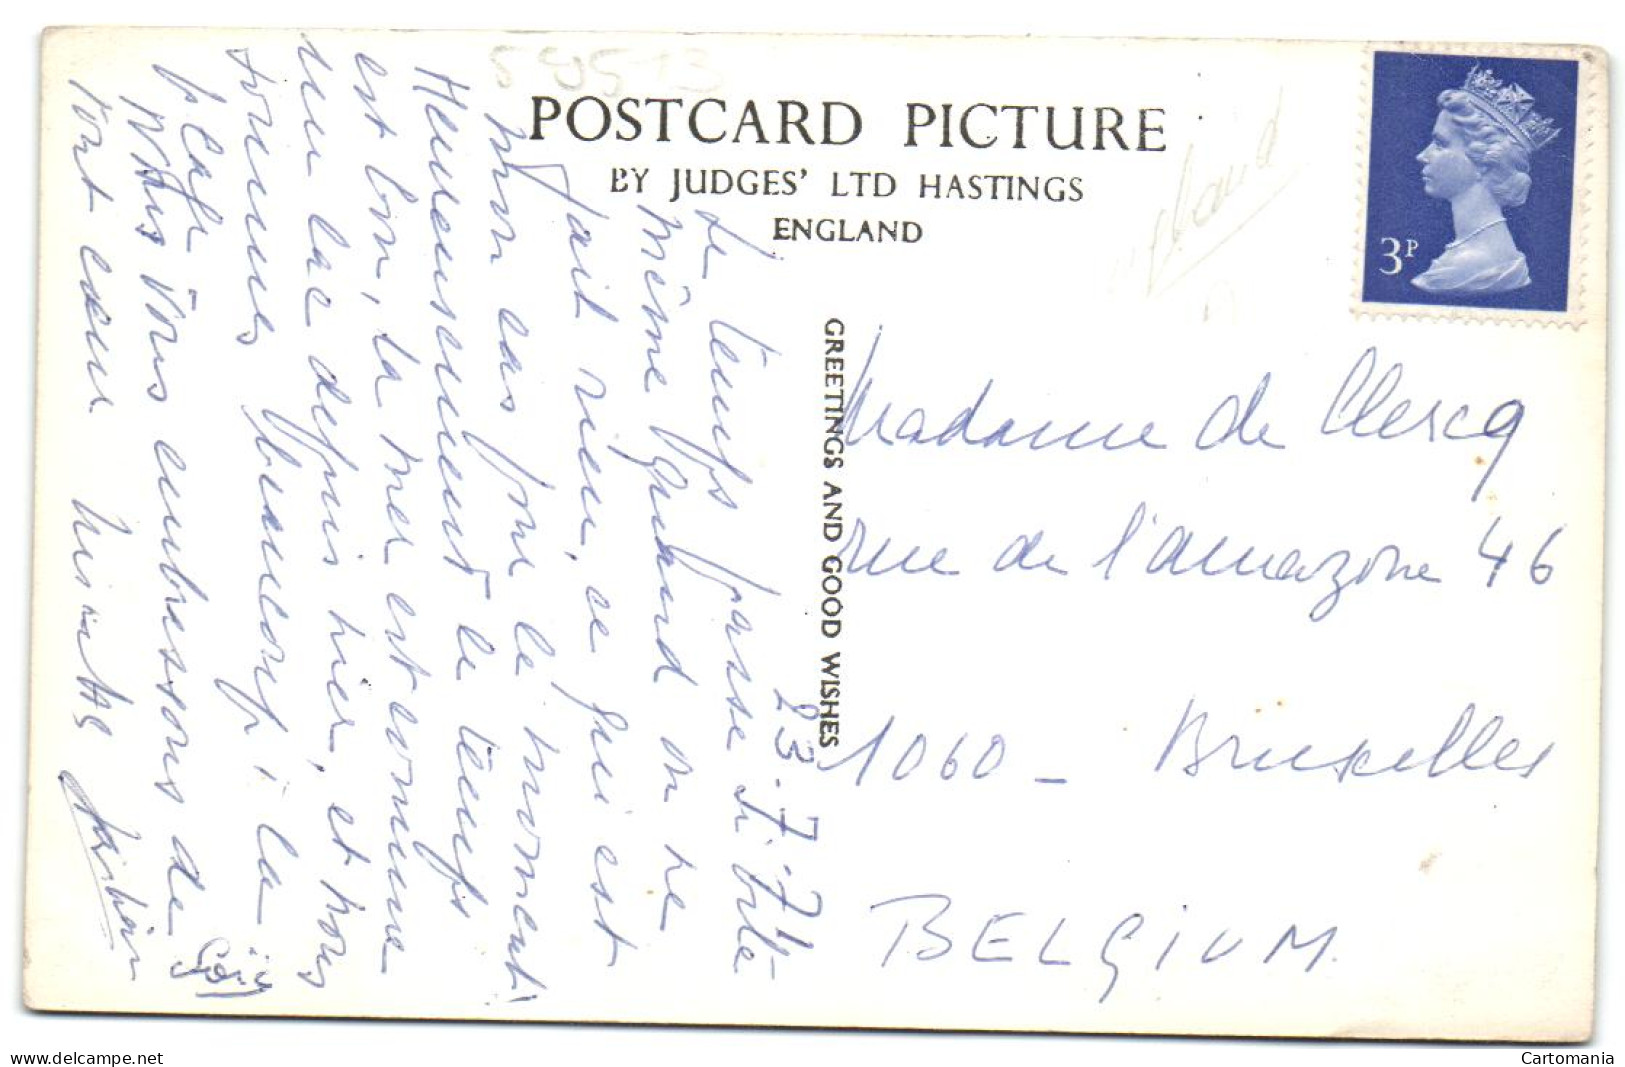 59513
POSTCARD PICTURE
BY JUDGES' LTD HASTINGS
ENGLAND
3P
GREETINGS AND GOOD WISHES
23-7-71-
Le temps passe si vite
même quand on ne
fait rien, ce qui est
mon cas pour le moment!
Heureusement le temps
est bon, la mer est comme
un lac depuis hier, et nous
sommes beaucoup à la
plage
Nous vous embrassons de
tout cœur
Madame de Clercq
rue de l'amazone 46
1060 - Bruxelles
BELGIUM.
www.delcampe.net
Cartomania